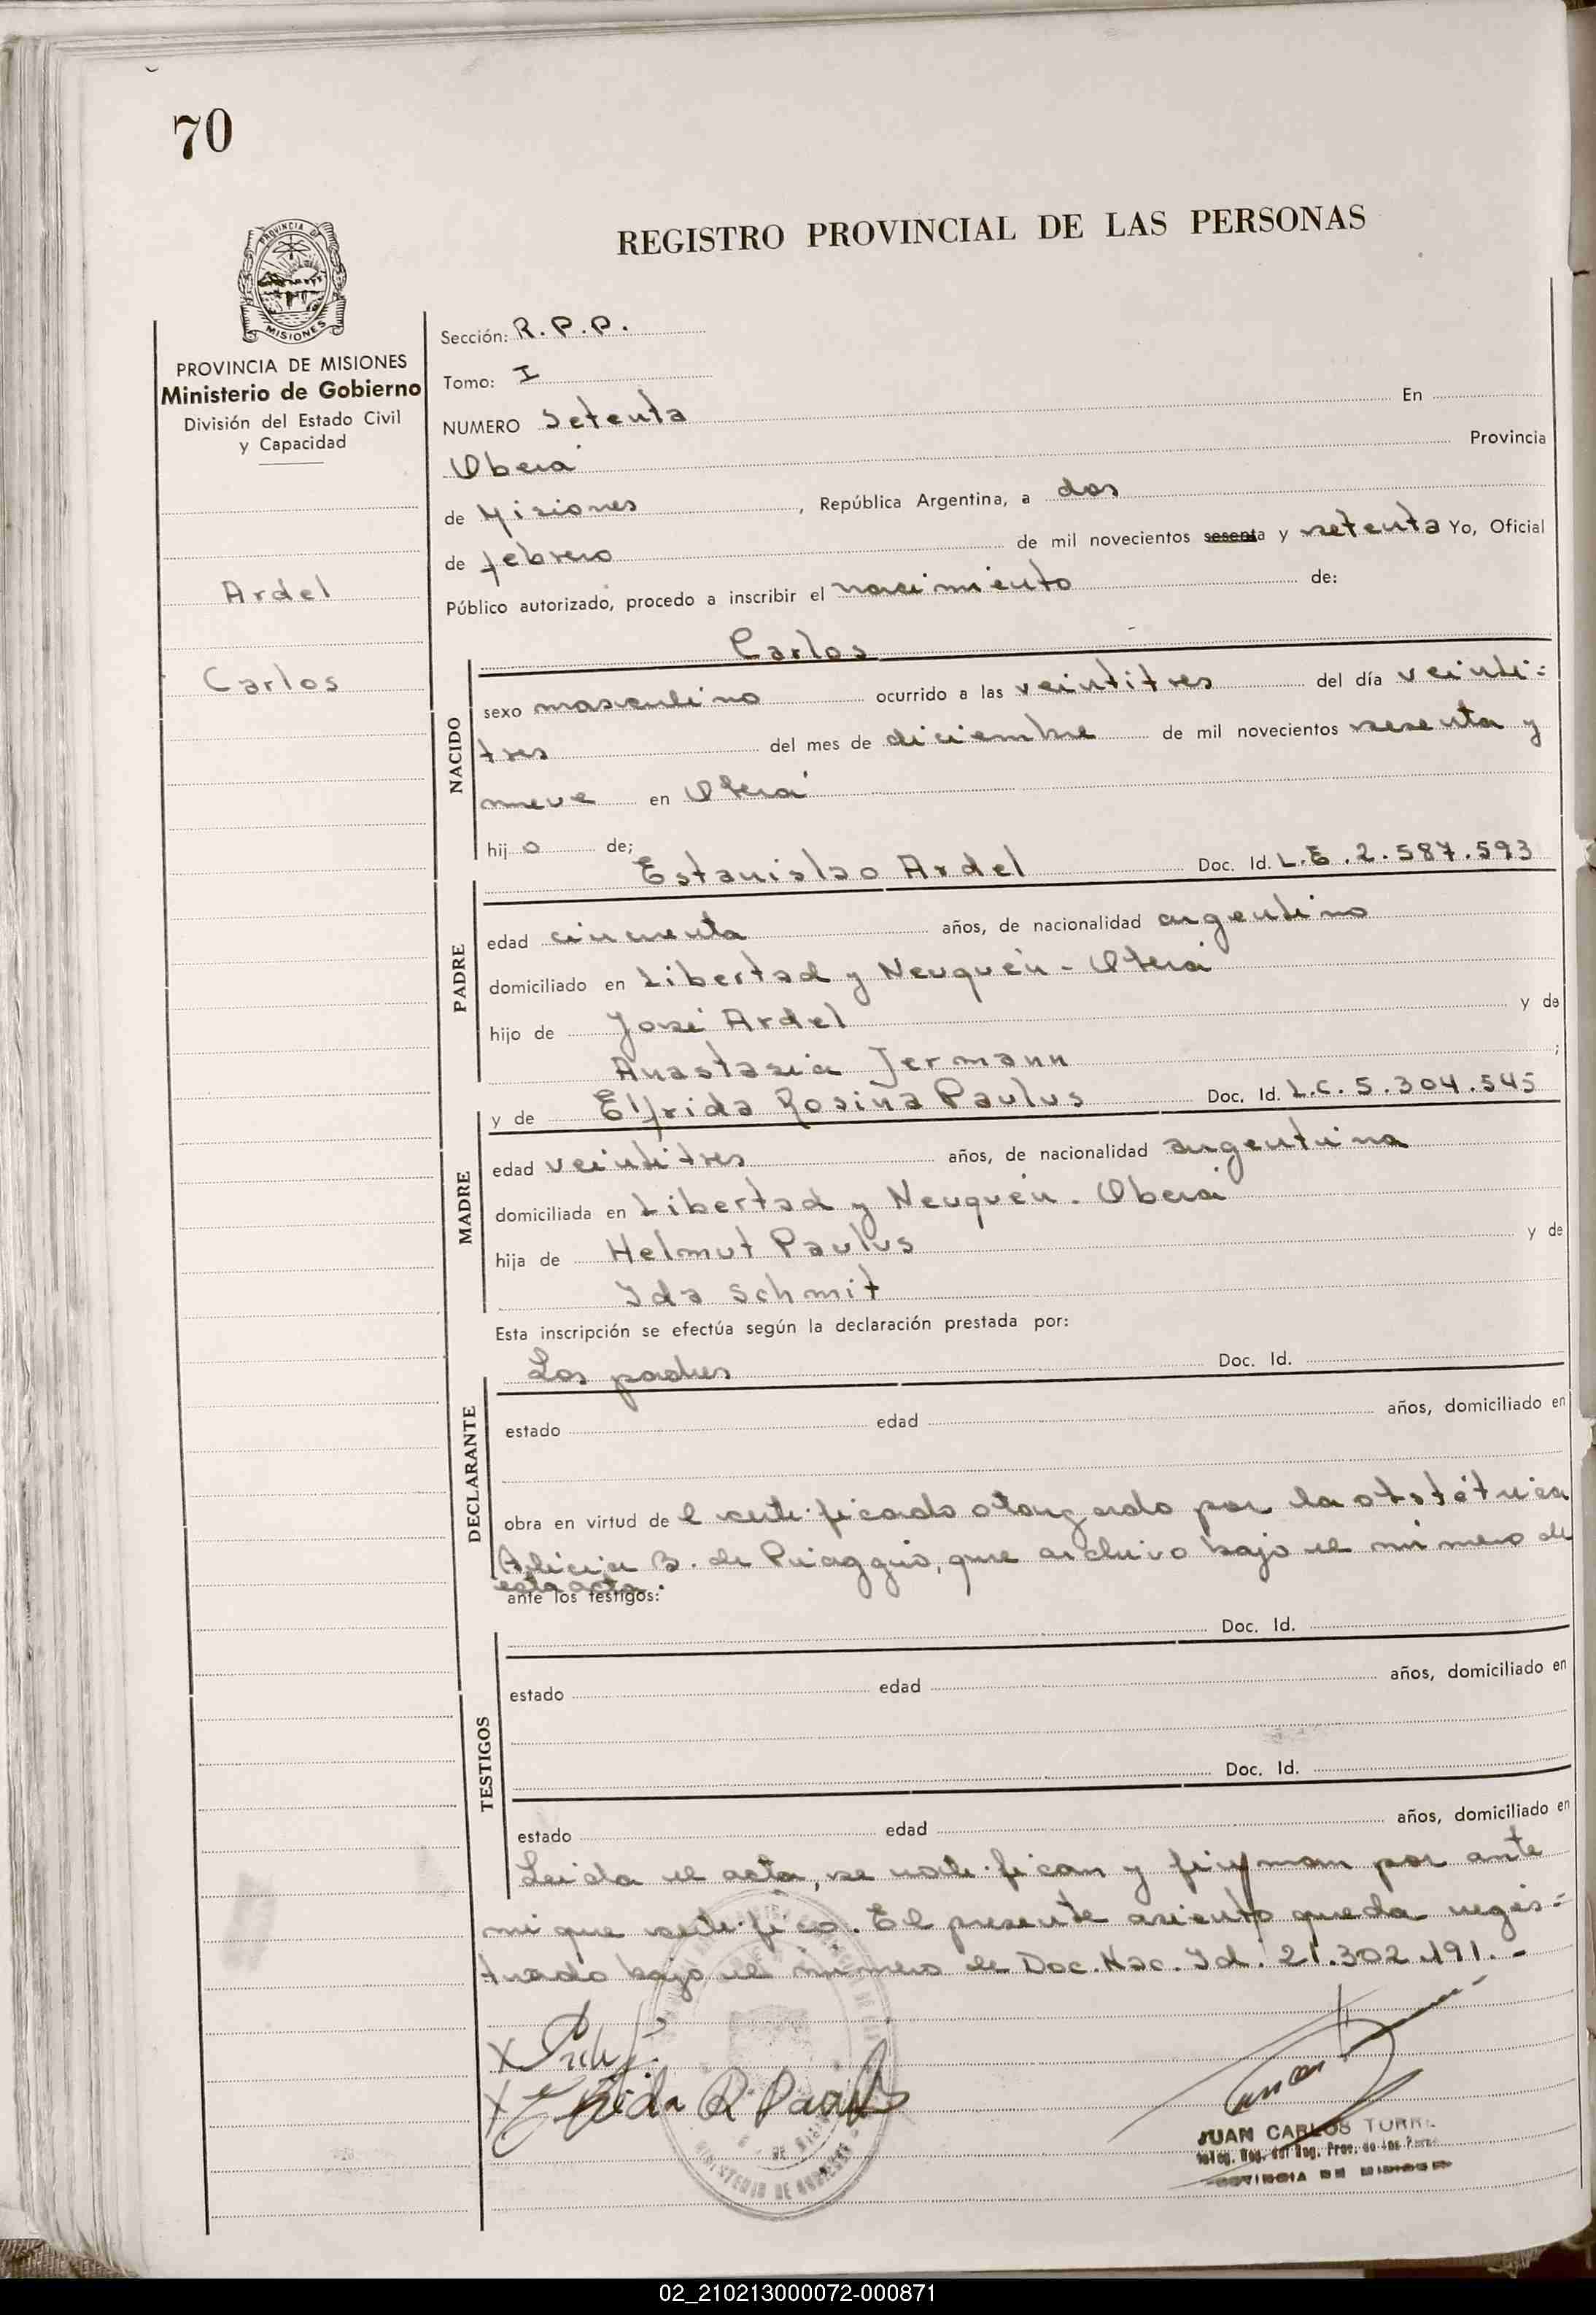 70
REGISTRO PROVINCIAL DE LAS PERSONAS
PROVINCIA DE
MISIONES
PROVINCIA DE MISIONES
Ministerio de Gobierno
División del Estado Civil
y Capacidad
Ardel
Carlos
Sección: R.P.P.
Tomo: I
NUMERO Setenta En
Oberá Provincia
de Misiones, República Argentina, a dos
de febrero de mil novecientos sesenta y setenta Yo, Oficial
Público autorizado, procedo a inscribir el nacimiento de:
Carlos
NACIDO
sexo masculino ocurrido a las veintitres del día veinti=
tres del mes de diciembre de mil novecientos sesenta y
nueve en Oberá
hijo de;
Estanislao Ardel Doc. Id. L.E. 2.587.593
PADRE
edad cincuenta años, de nacionalidad argentino
domiciliado en Libertad y Neuquén - Oberá
hijo de José Ardel y de
Anastasia Jermann ;
y de Elfrida Rosina Paulus Doc. Id. L.C. 5.304.545
MADRE
edad veintitres años, de nacionalidad argentina
domiciliada en Libertad y Neuquén - Oberá
hija de Helmut Paulus y de
Ida Schmit
Esta inscripción se efectúa según la declaración prestada por:
Los padres Doc. Id.
DECLARANTE
estado edad años, domiciliado en
obra en virtud del certificado otorgado por la obstétrica
Alicia B. de Piaggio, que archivo bajo el número de
esta acta.
ante los testigos:
Doc. Id.
TESTIGOS
estado edad años, domiciliado en
Doc. Id.
estado edad años, domiciliado en
Leida el acta, se ratifican y firman por ante
mi que certifico. El presente asiento queda regis=
trado bajo el número de Doc. Nac. Id. 21.302.191.-
X
X Elfrida R. Paulus
JUAN CARLOS
02_210213000072-000871